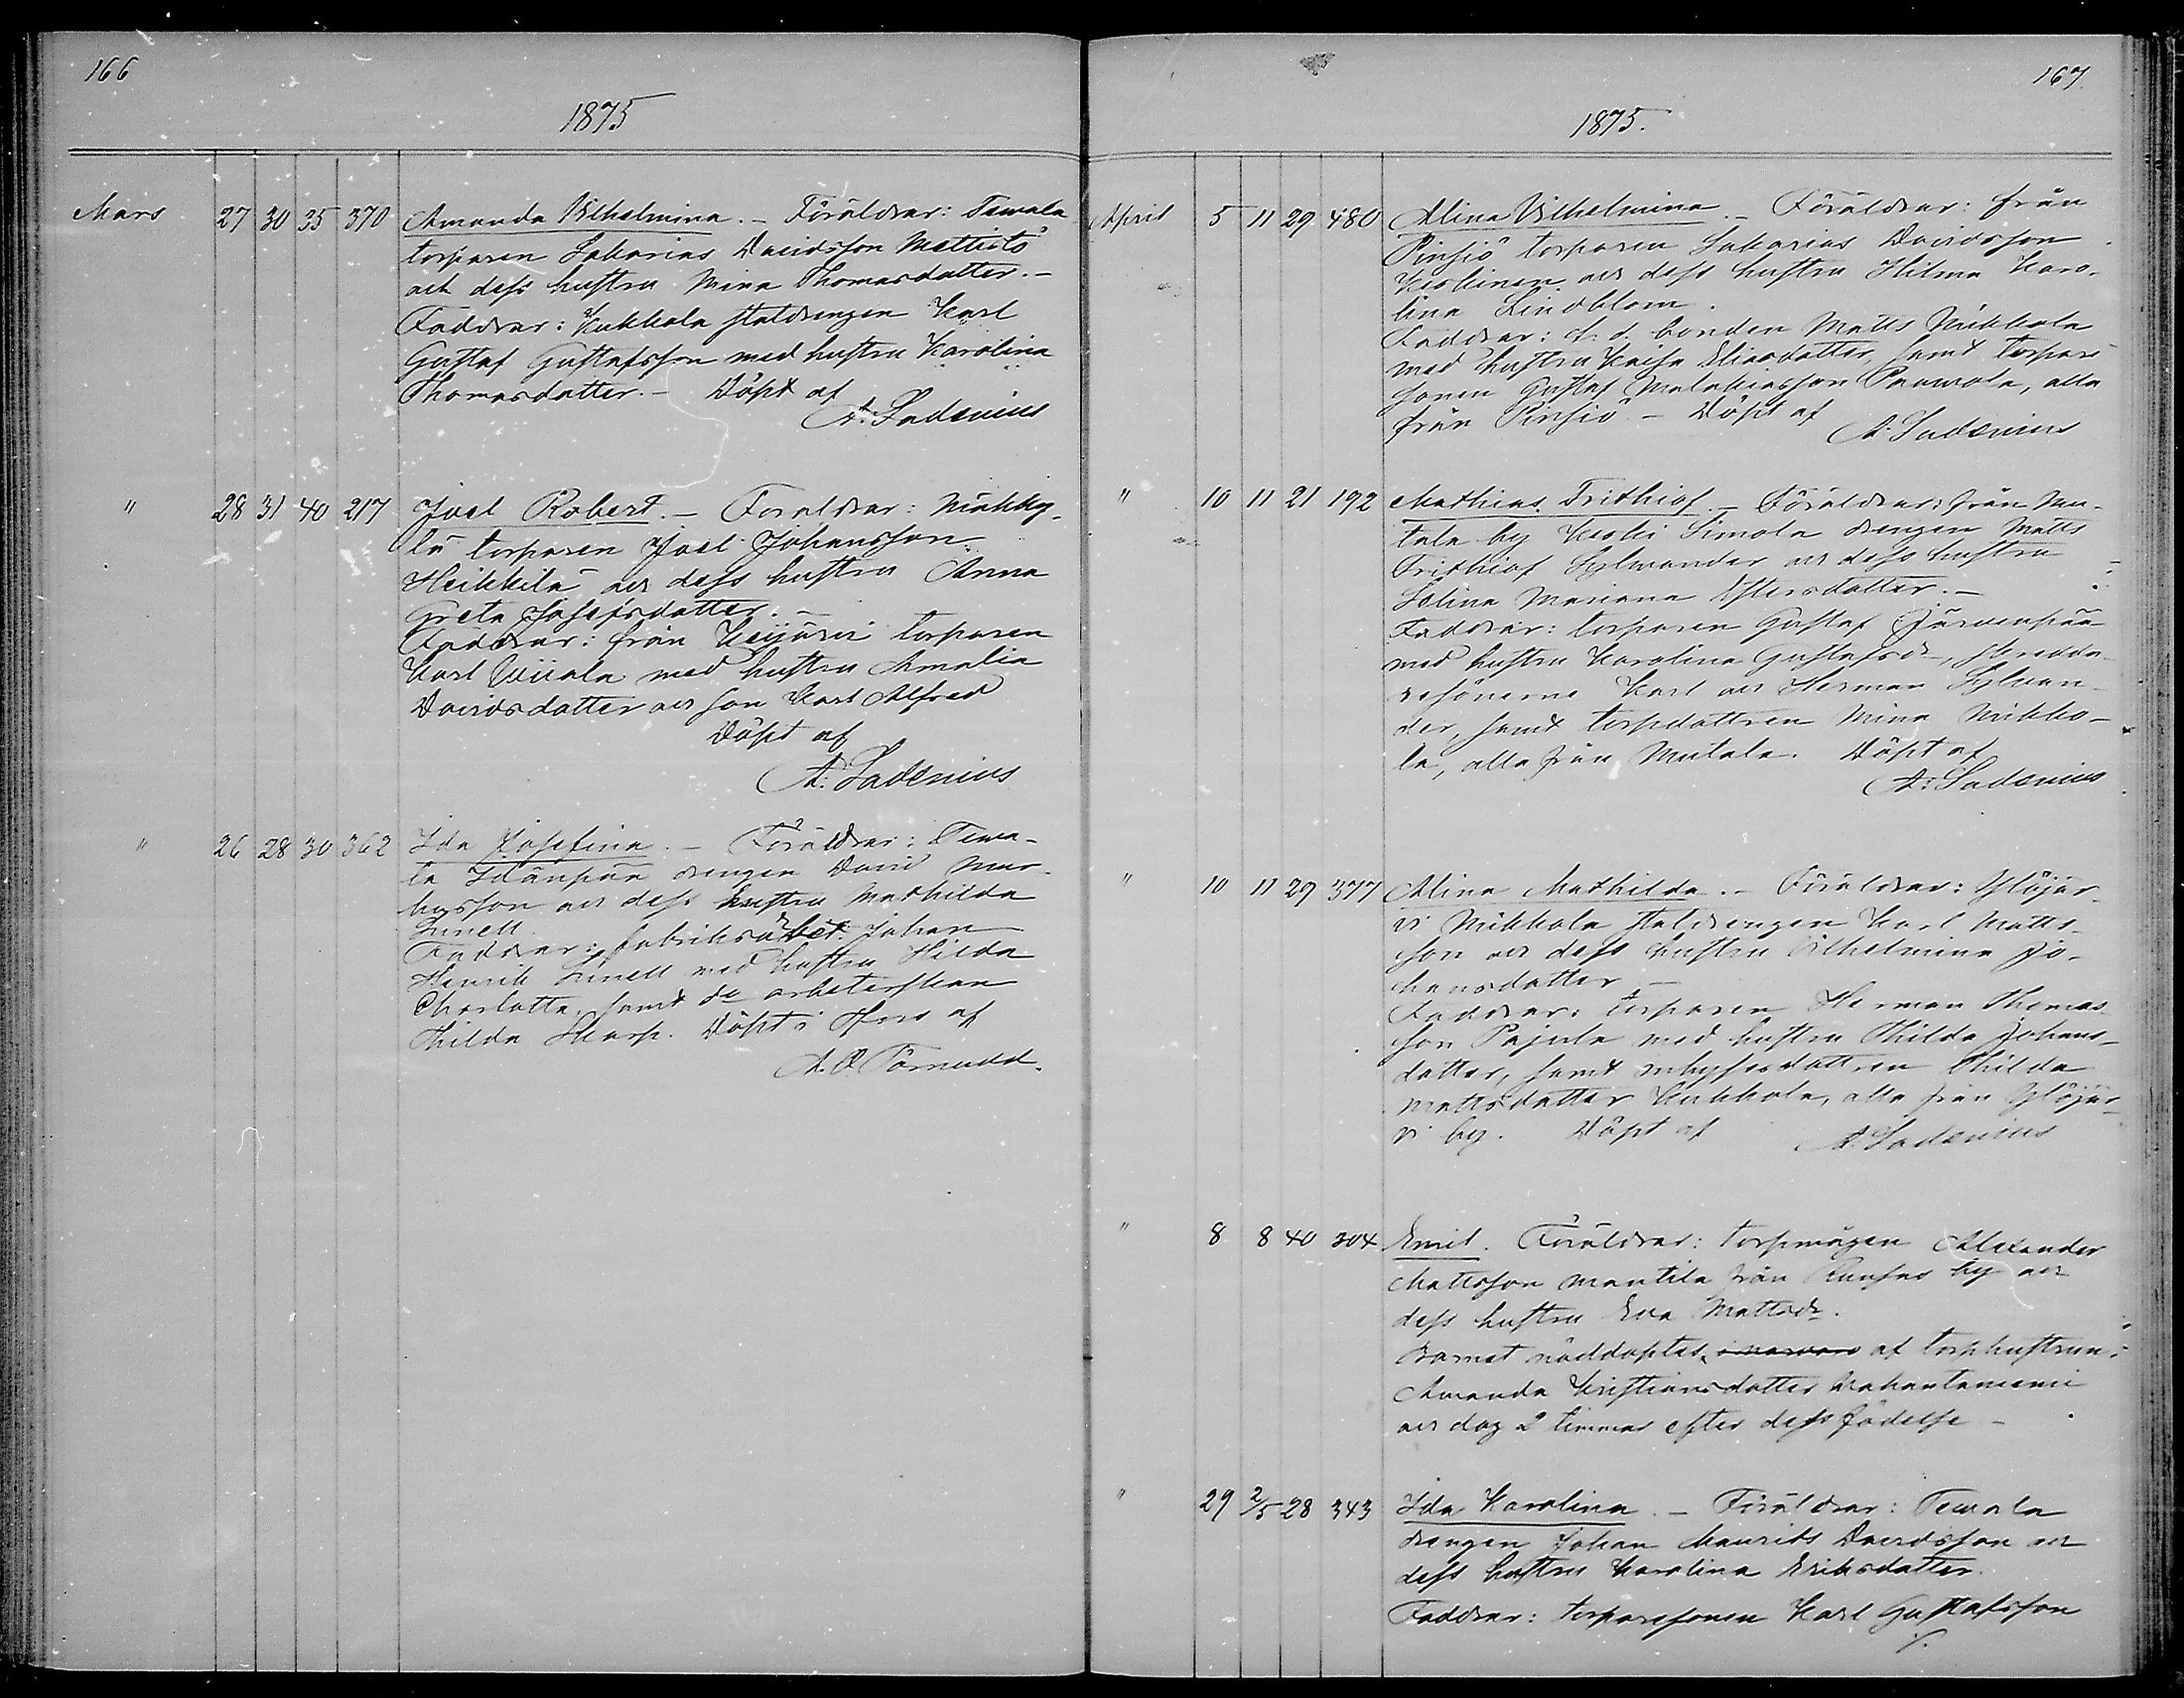 166
1875
Mars 27 30 35 370 Amanda Vilhelmina. – Föräldrar: Tewala
torparen Sakarias Davidsson Mettistö
och dess hustru Mina Thomasdatter. –
Faddrar: Kukkola staldrengen Karl
Gustaf Gustafsson med hustru Karolina
Thomasdatter. – Döpt af
A: Ladenius
" 28 31 40 217 Joel Robert. – Föräldrar: Mikkby-
lä torparen Joel Johansson
Heikkilä och dess hustru Anna
Greta Josefsdatter. –
Faddrar: från Keijärvi torparen
Karl Wiiala med hustru Amalia
Davidsdatter och son Karl Alfred
Döpt af
A: Ladenius
" 26 28 30 362 Ida Josefina. – Föräldrar: Tewa-
la drengen David Mar-
husson och dess hustru Mathilda
Linell
Faddrar: fabriksarbet. Johan
Henrik Linell med hustru Hilda
Charlotta, samt arbeterskan
Hilda Skarp. Döpt i Tfors af
A. O. Törnudd.
167
1875.
April 5 11 29 480 Alina Vilhelmina. – Föräldrar: från
Pinsiö torparen Sakarias Davidsson
Keskinen och dess hustru Hilma Karo-
lina Lindblom.
Faddrar: f. d. bonden Matts Mikkola
med hustru Kajsa Eliasdatter, samt torpare
sonen Gustaf Malakiasson Paawola, alla
från Pinsiö – Döpt af
A. Ladenius
" 10 11 21 192 Mathias Frithiof. – Föräldrar: från Mu-
tala by Keski Simola drengen Matts
Frithiof Sylvander och dess hustru
Selina Mariana Estersdatter. –
Faddrar: torparen Gustaf Järvenpää
med hustru Karolina Gustafsdr, skredda-
resönerne Karl och Herman Sylvan-
der, samt torpdottren Mina Mikko-
la, alla från Mutala. Döpt af
A: Ladenius
" 10 11 29 377 Alina Mathilda. – Föräldrar: Ylöjär-
vi Mikkola staldrengen Karl Matts-
son och dess hustru Vilhelmina Jo-
hansdatter –
Faddrar: torparen Herman Thomas-
son Pajula med hustru Thilda Johans-
datter, samt inhysesdottren Thilda
Mattsdatter Kukkola, alla från Ylöjär-
vi by. Döpt af A. Ladenius
" 8 8 40 304 Emil. Föräldrar: torpmågen Alexander
Mattsson Mantila från Runsas by och
dess hustru Eva Mattsdr.
Barnet nöddöptes af torphustrun
Amanda Kristiansdatter Wahantaniemi
och dog 2 timmar efter dess födelse –
" 29 2/5 28 343 Ida Karolina. – Föräldrar: Tewala
drengen Johan Maurits Davidsson och
dess hustru Karolina Eriksdatter.
Faddrar: torparesonen Karl Gustafsson
./.